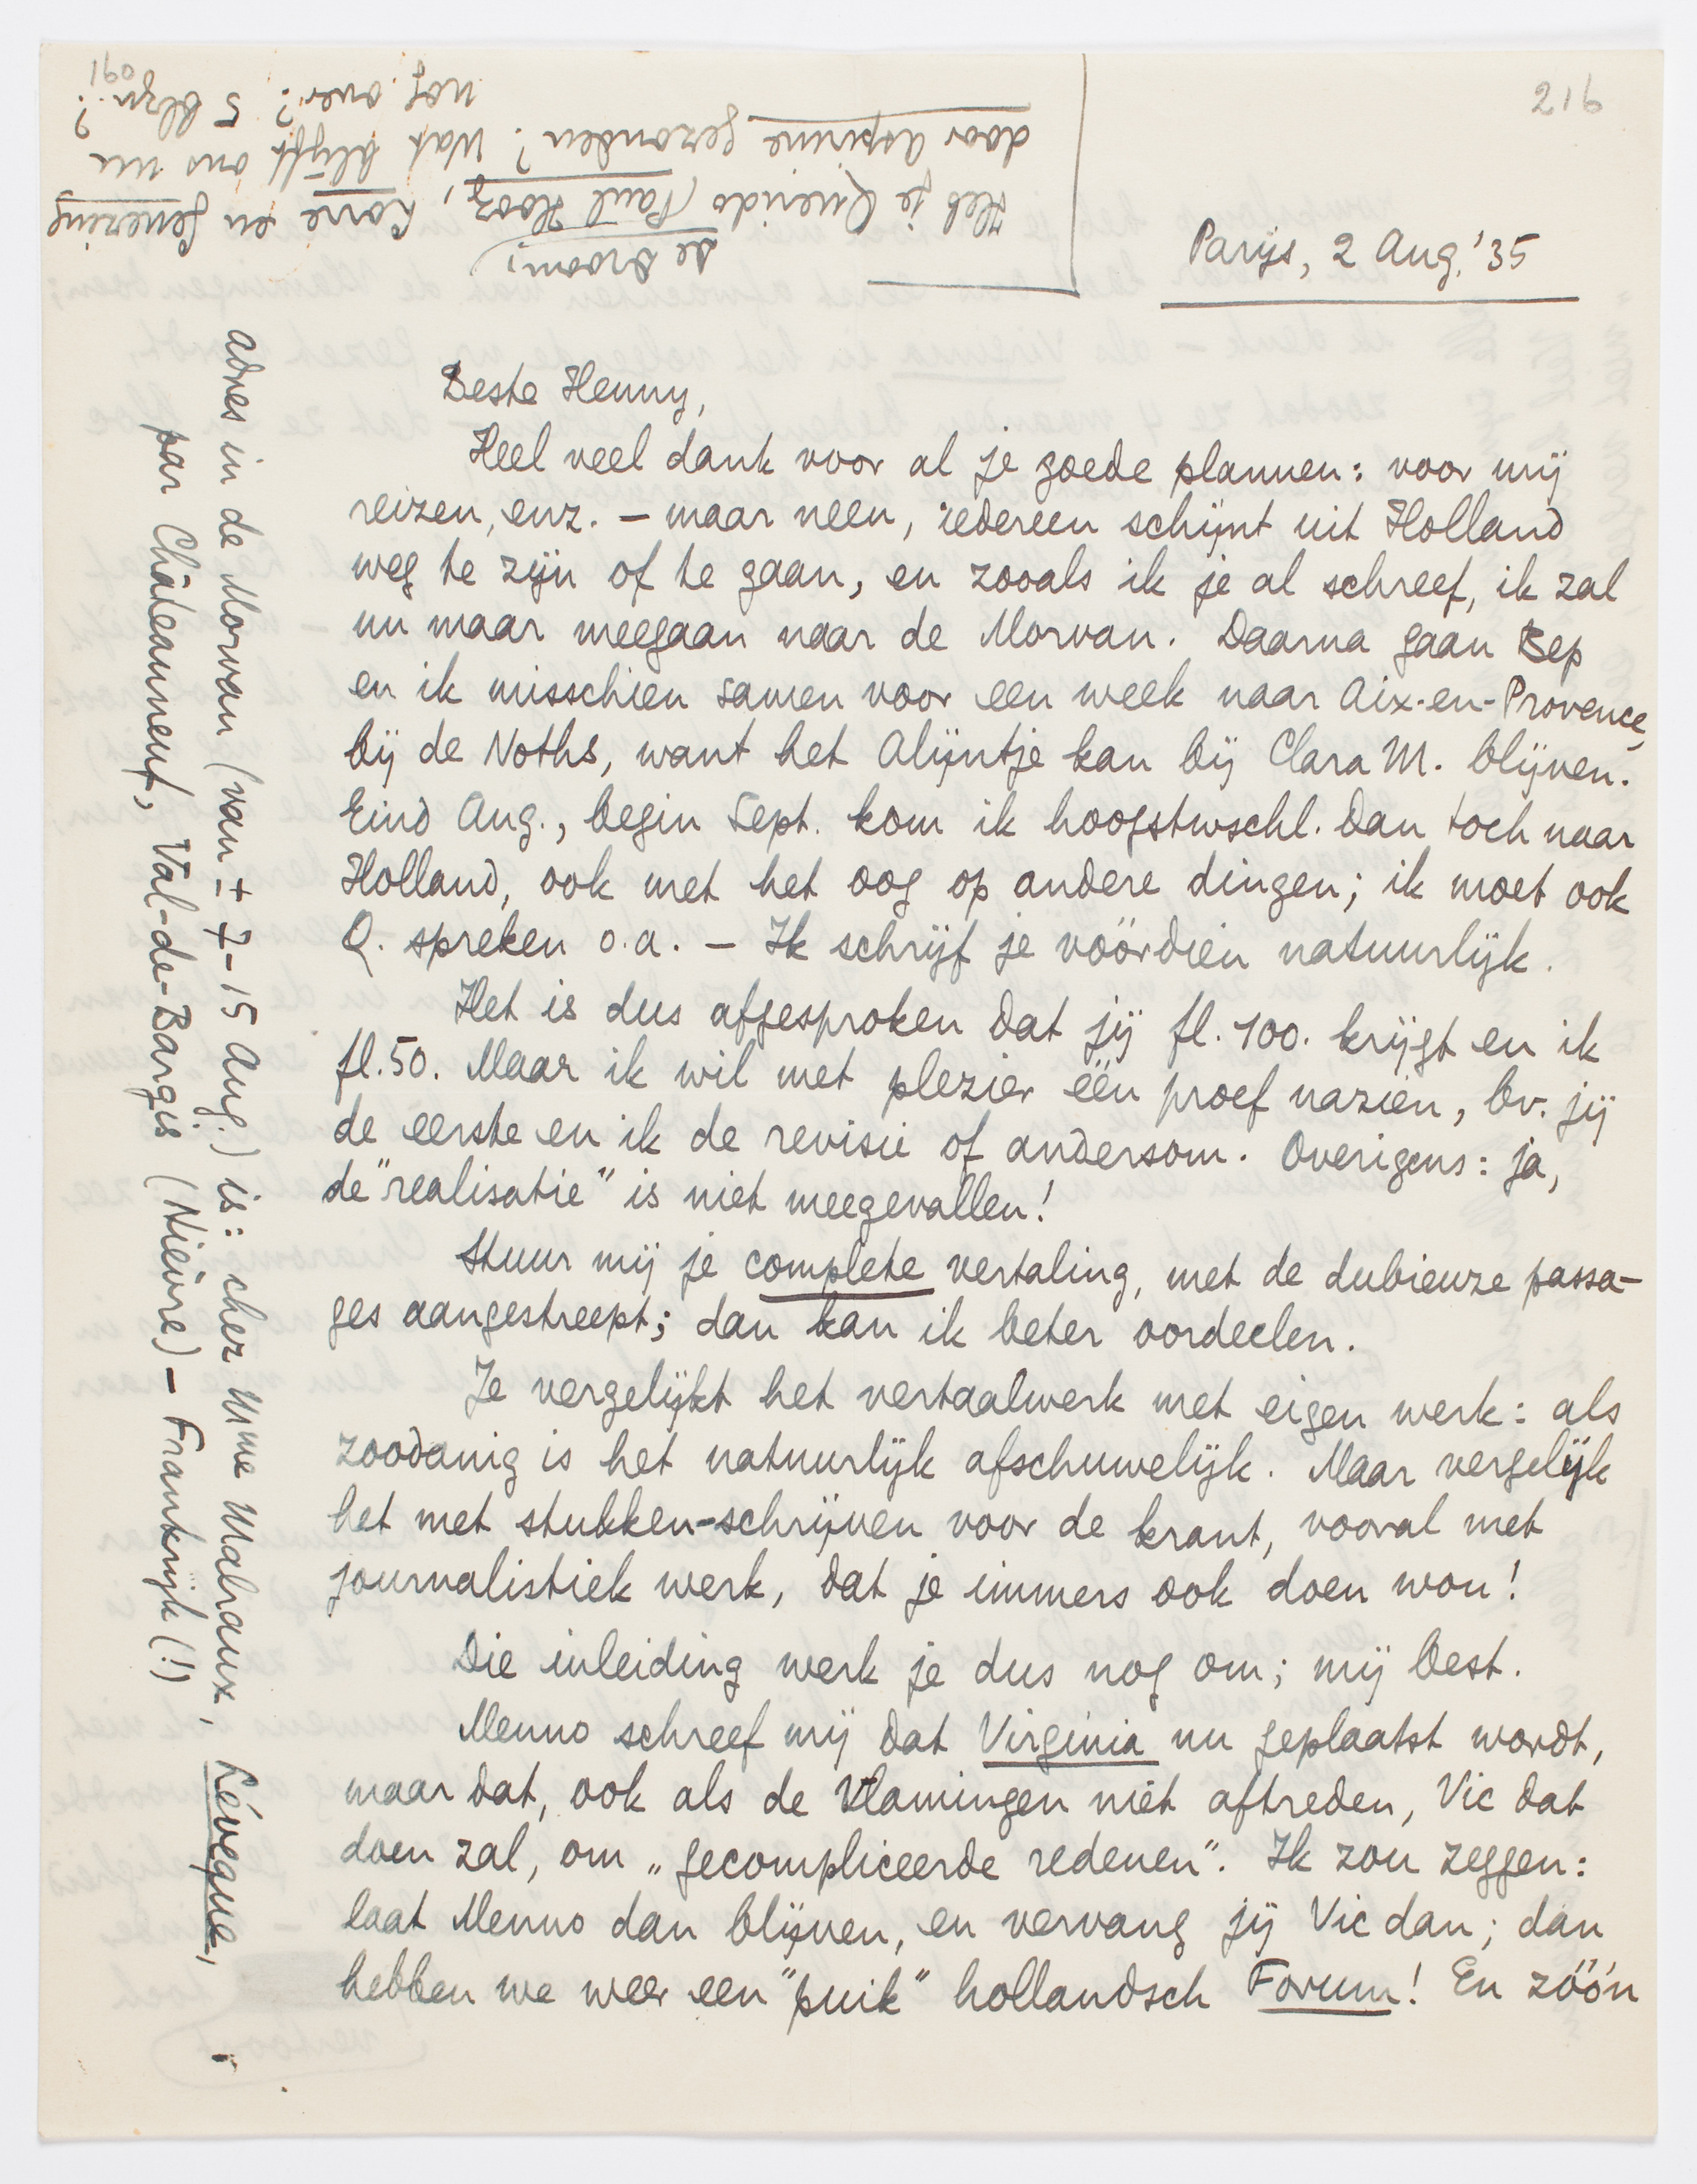 216
160
Parijs, 2 Aug. '35
Beste Henny,
Heel veel dank voor al je goede plannen: voor mij
reizen, enz. – maar neen, iedereen schijnt uit Holland
weg te zijn of te gaan, en zooals ik je al schreef, ik zal
nu maar meegaan naar de Morvan. Daarna gaan Bep
en ik misschien samen voor een week naar Aix-en-Provence,
bij de Noths, want het Alijntje kan bij Clara M. blijven.
Eind Aug., begin Sept. kom ik hoogstwschl. dan toch naar
Holland, ook met het oog op andere dingen; ik moet ook
Q. spreken o.a. – Ik schrijf je vóórdien natuurlijk.
Het is dus afgesproken dat jij fl. 100. krijgt en ik
fl. 50. Maar ik wil met plezier één proef nazien, bv. jij
de eerste en ik de revisie of andersom. Overigens: ja,
de "realisatie" is niet meegevallen!
Stuur mij je complete vertaling, met de dubieuze passa-
ges aangestreept; dan kan ik beter oordeelen.
Je vergelijkt het vertaalwerk met eigen werk: als
zoodanig is het natuurlijk afschuwelijk. Maar vergelijk
het met stukken-schrijven voor de krant, vooral met
journalistiek werk, dat je immers ook doen wou!
Die inleiding werk je dus nog om; mij best.
Menno schreef mij dat Virginia nu geplaatst wordt,
maar dat, ook als de Vlamingen niet aftreden, Vic dat
doen zal, om „gecompliceerde redenen". Ik zou zeggen:
laat Menno dan blijven, en vervang jij Vic dan; dan
hebben we weer een "puik" hollandsch Forum! En zóó'n
adres in de Morvan (van ± 7-15 Aug.) is: chez Mme Malraux, Lévêque,
par Châteauneuf, Val-de-Bargis (Nièvre) – Frankrijk (!)
de droom,
Heb je Querido Paul Hooz, Lorre en Geuezing
door aspirine gezonden? Wat blijft ons nu
nog over? 5 blzn?